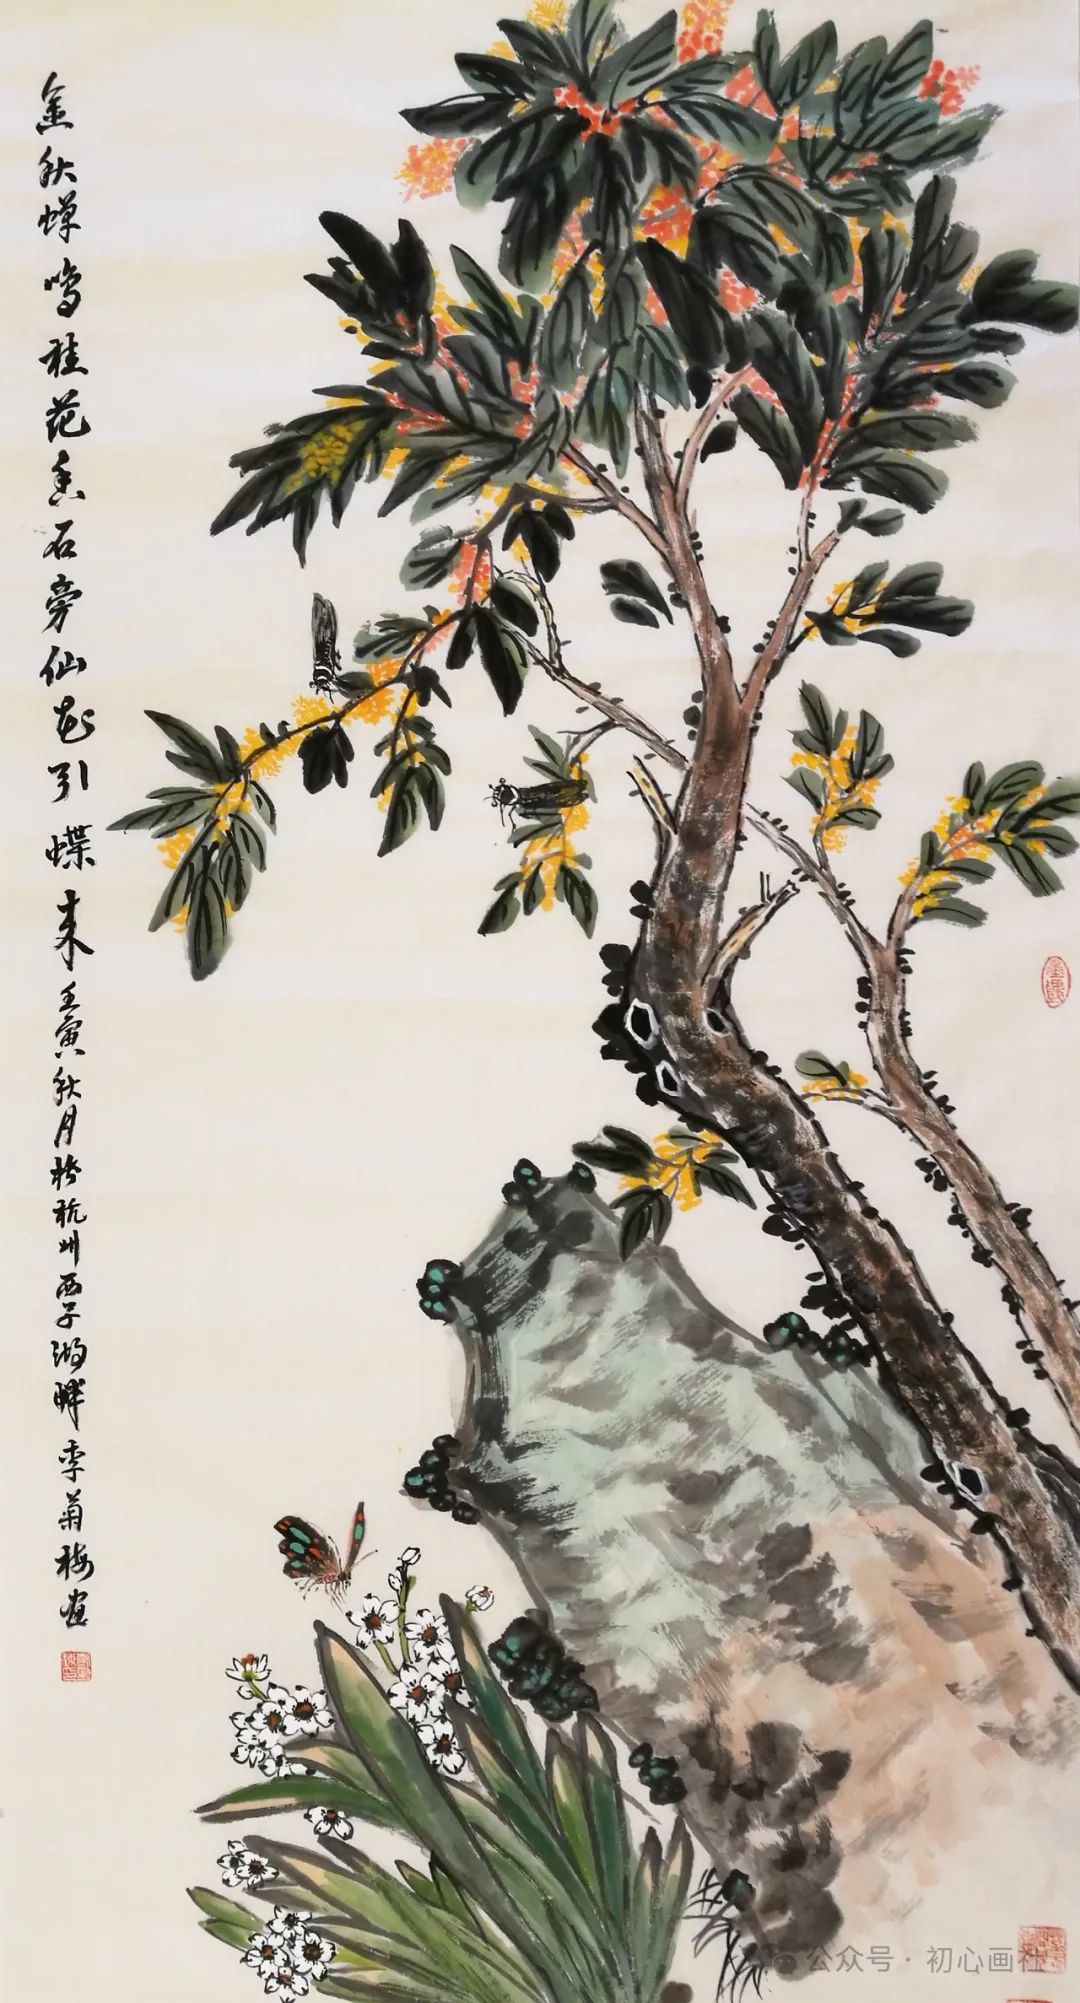 金秋蝉鸣桂花香石旁仙花引蝶来 壬寅秋月於杭州西子湖畔李菊梅画
公众号·初心画社